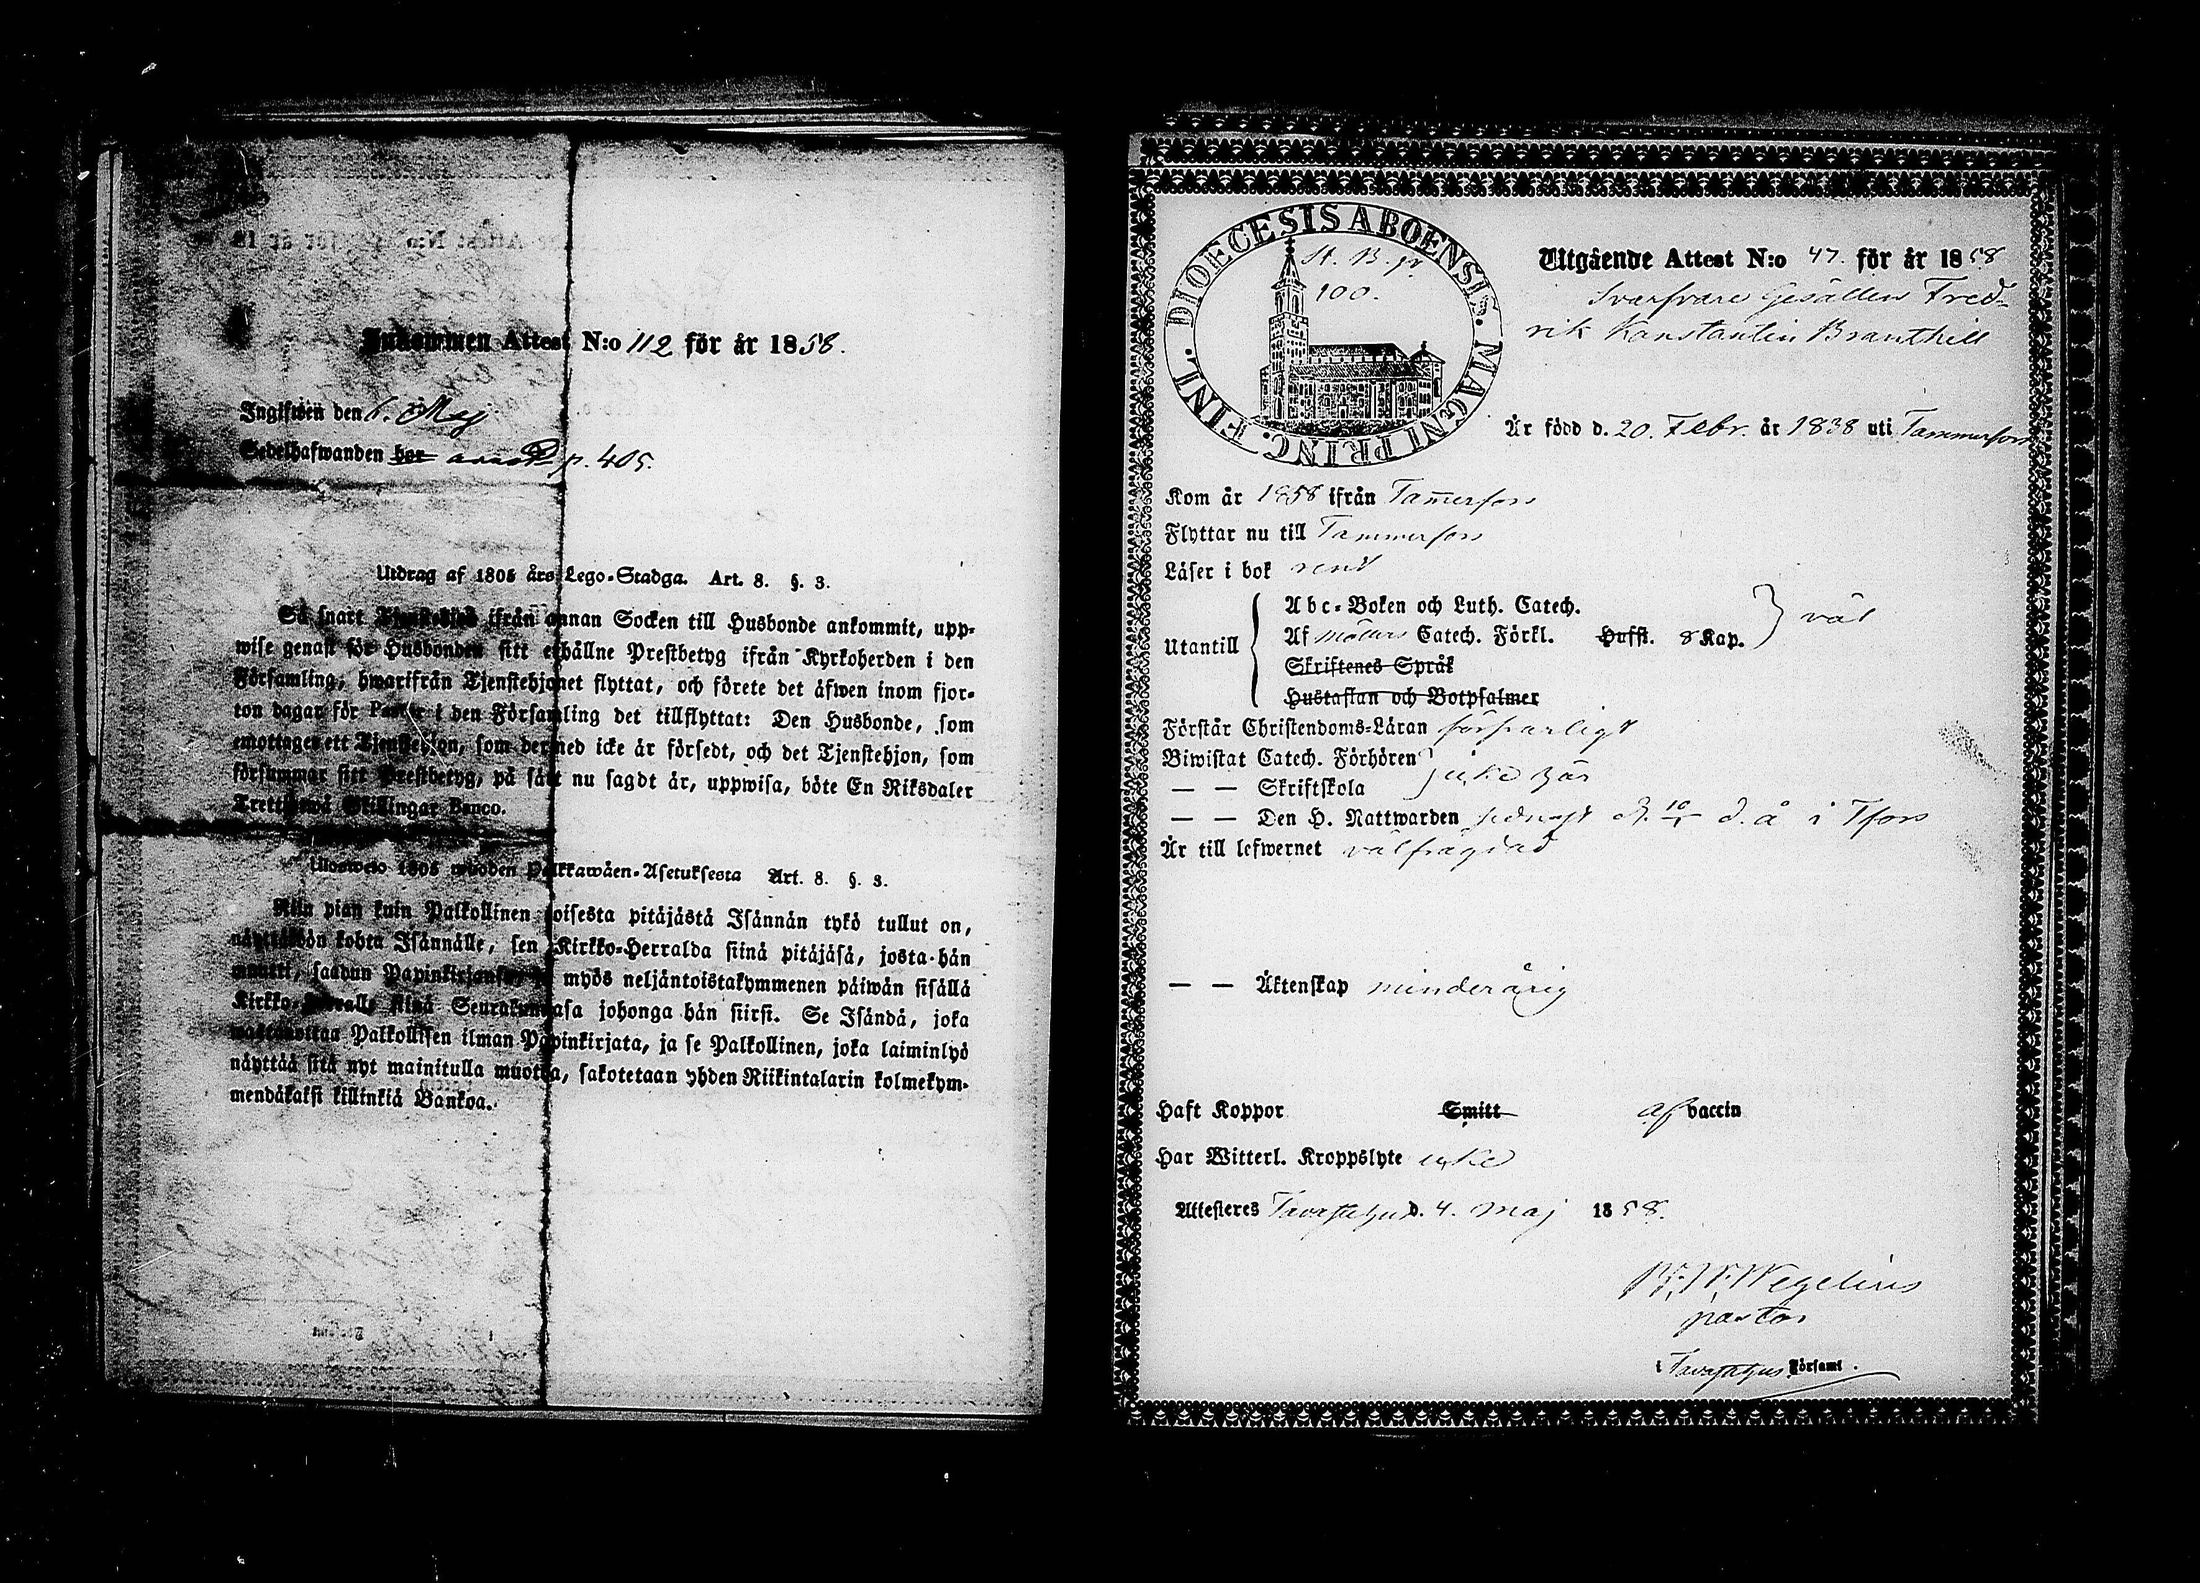 Inkommen Attest N:o 112 för år 1858.
Ingifwen den 6. Maj
Sedelhafwanden bor annot. p. 405.
Utdrag af 1805 års Lego-Stadga. Art. 8. §. 3.
Så snart Tjenstehjon ifrån annan Socken till Husbonde ankommit, upp-
wise genast för Husbonden sitt erhållne Prestbetyg ifrån Kyrkoherden i den
Församling, hwarifrån Tjenstehjonet flyttat, och förete det äfwen inom fjor-
ton dagar för Pastor i den Församling det tillflyttat: Den Husbonde, som
emottager ett Tjenstehjon, som dermed icke är försedt, och det Tjenstehjon, som
försummar sitt Prestbetyg, på sätt nu sagdt är, uppwisa, böte En Riksdaler
Trettiotwå Skillingar Banco.
Ulosweto 1805 wuoden Palkkawäen-Asetuksesta Art. 8. §. 3.
Niin pian kuin Palkollinen toisesta pitäjästä Isännän tykö tullut on,
näyttäköön kohta Isännälle, sen Kirkko-Herralda siinä pitäjäsä, josta hän
muutti, saadun Papinkirjansa, ja myös neljäntoistakymmenen päiwän sisällä
Kirkko-Herralle siinä Seurakunnasa johonga hän siirsi. Se Isändä, joka
wastaanottaa Palkollisen ilman Papinkirjata, ja se Palkollinen, joka laiminlyö
näyttää sitä nyt mainitulla muotoa, sakotetaan yhden Riikintalarin kolmekym-
mendäkaksi killinkiä Bankoa.
DIOECESIS ABOENSIS. MAGNI PRINC. FINL.
St. B. p.
100.
Utgående Attest N:o 47. för år 1858
Svarfvare Gesällen Fred-
rik Konstantin Branthill
Är född d. 20. Febr. år 1838 uti Tammerfors
Kom år 1858 ifrån Tammerfors
Flyttar nu till Tammerfors
Läser i bok rent
Utantill
Abc-Boken och Luth. Catech.
Af Möllers Catech. Förkl. Hufst. 8 Kap. väl
Skriftenes Språk
Hustaflan och Botpsalmer
Förstår Christendoms-Läran försvarligt
Biwistat Catech. Förhören
— — Skriftskola icke här
— — Den H. Nattwarden sednast d. 10 d. å i Tfors
Är till lefwernet välfrägdad
— — Äktenskap minderårig
Haft Koppor Smitt af vaccin
Har Witterl. Kroppslyte icke
Attesteres Tavastehus d. 4. Maj 1858.
Wegelius
pastor
i Tavastehus Församl.